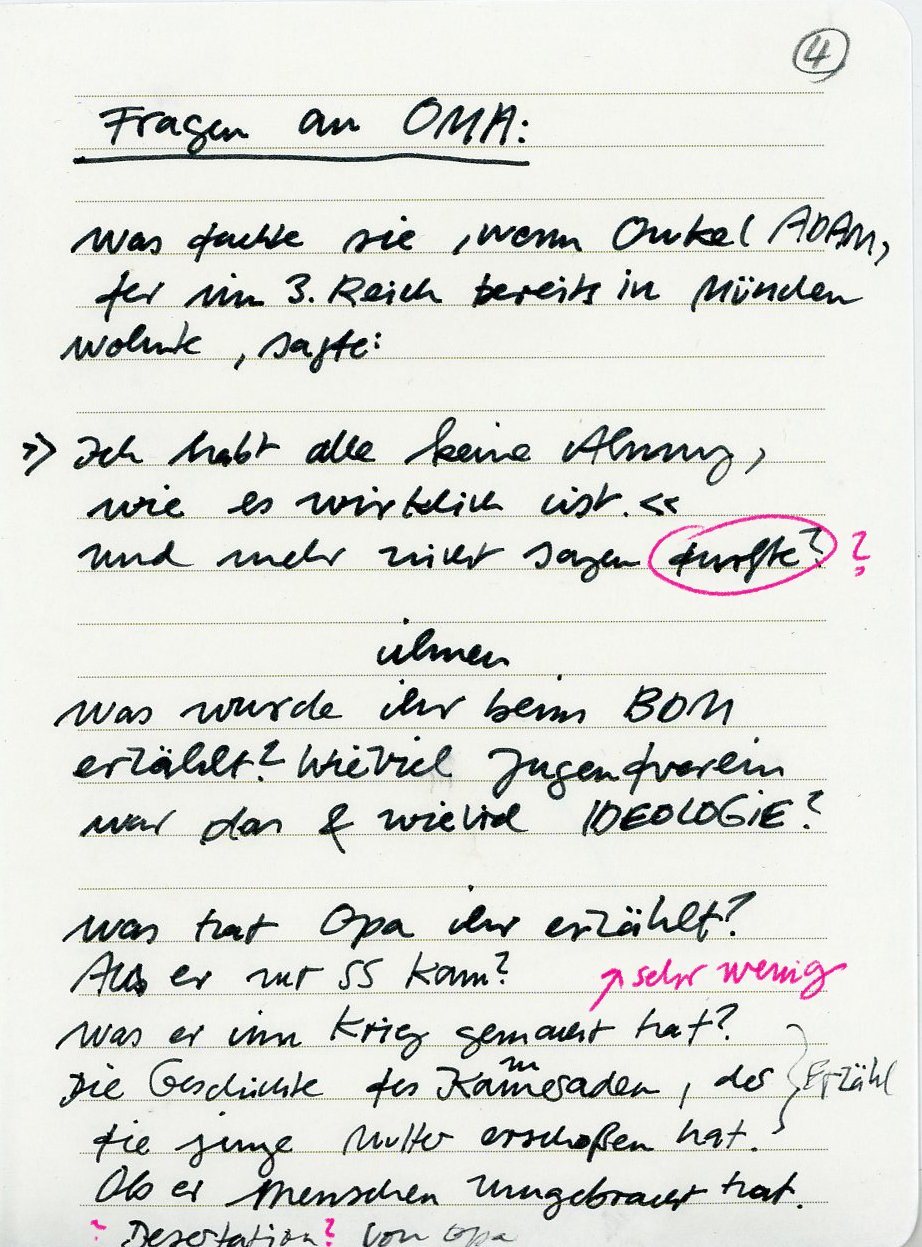 4
Fragen an OMA:
Was dachte sie, wenn Onkel ADAM,
der im 3. Reich bereits in München
wohnte, sagte:
>> Ihr habt alle keine Ahnung,
wie es wirklich ist. <<
und mehr nicht sagen durfte? ?
ihnen
Was wurde ihr beim BDM
erzählt? Wieviel Jugendverein
war das & wieviel IDEOLOGIE?
Was hat Opa ihr erzählt?
Als er zur SS kam?
↗ sehr wenig
Was er im Krieg gemacht hat?
m
Die Geschichte des Kameraden, der
Erzähl
die junge Mutter erschoßen hat.
Ob er Menschen umgebracht hat.
? Desertation? von Opa